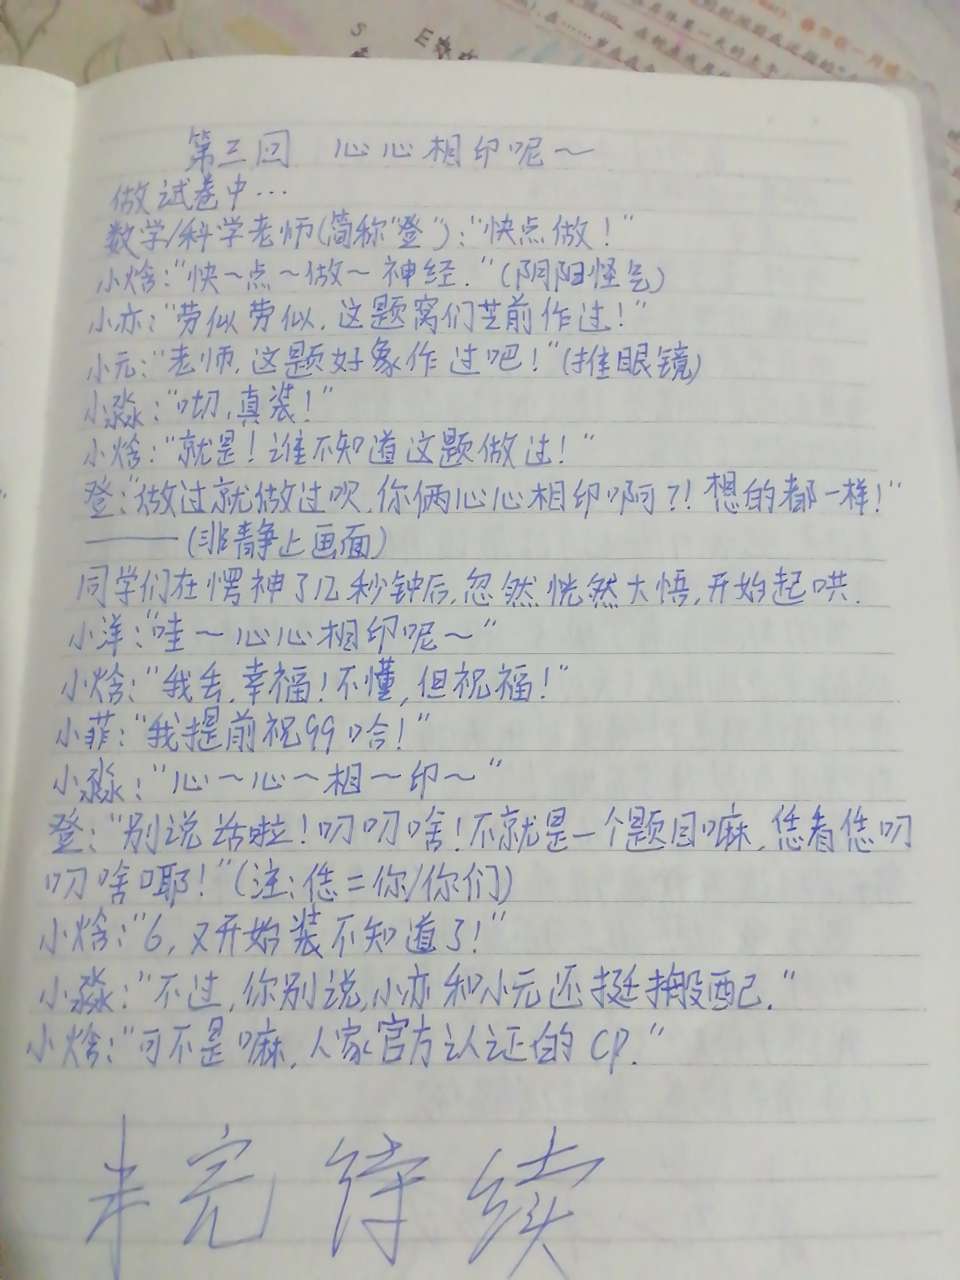 第三回 心心相印呢～
做试卷中…
数学/科学老师(简称“登”):“快点做!”
小焓:“快～点～做～神经.”(阴阳怪气)
小亦:“劳似劳似,这题窝们芝前作过!”
小元:“老师,这题好象作过吧!”(推眼镜)
小淼:“呦,真装!”
小焓:“就是!谁不知道这题做过!”
登:“做过就做过呗,你俩心心相印啊?!想的都一样!”
——(非静止画面)
同学们在愣神了几秒钟后,忽然恍然大悟,开始起哄.
小洋:“哇～心心相印呢～”
小焓:“我去,幸福!不懂,但祝福!”
小菲:“我提前祝99哈!”
小淼:“心～心～相～印～”
登:“别说话啦!叨叨啥!不就是一个题目嘛,恁看恁叨
叨啥耶!”(注:恁=你/你们)
小焓:“6,又开始装不知道了!”
小淼:“不过,你别说,小亦和小元还挺般配.”
小焓:“可不是嘛,人家官方认证的CP.”
未完待续
S
E